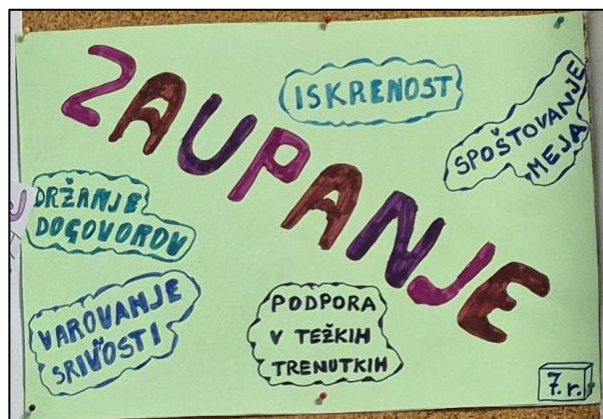 ZAUPANJE
ISKRENOST
SPOŠTOVANJE
MEJA
DRŽANJE
DOGOVOROV
VAROVANJE
PODPORA
V TEŽKIH
TRENUTKIH
7. r.